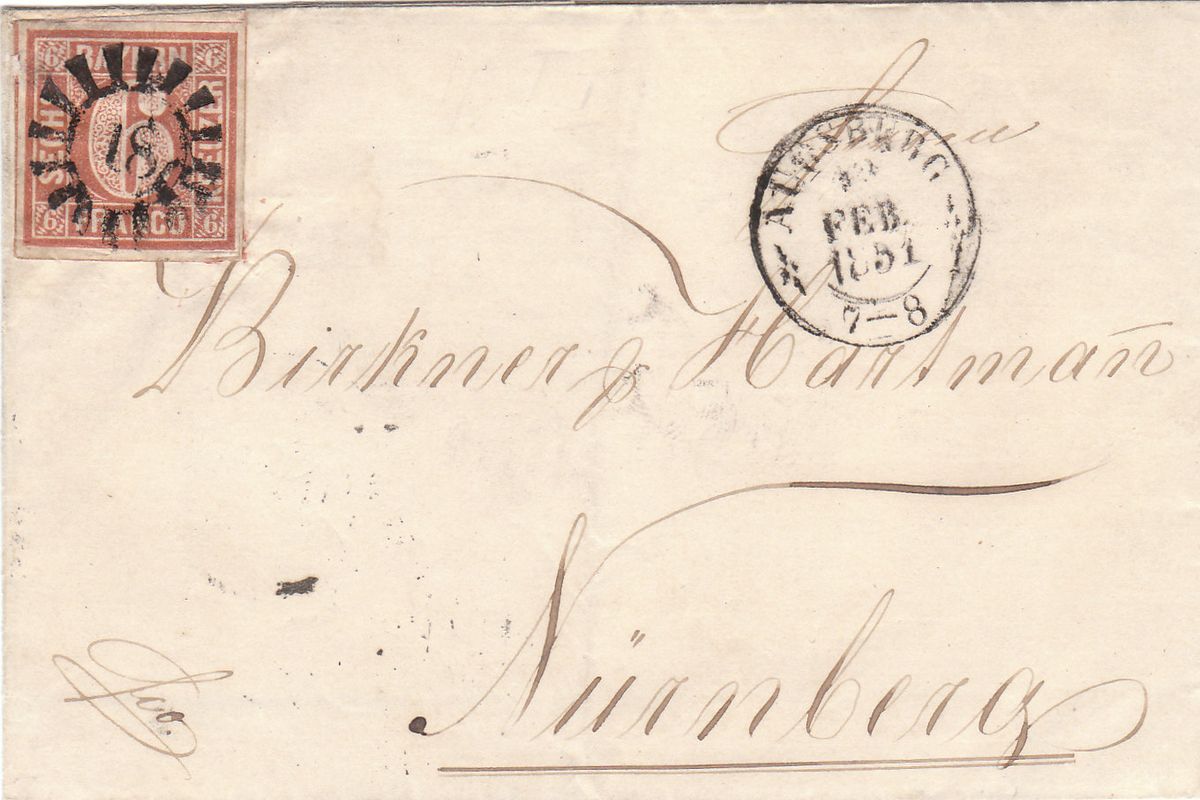 6 BAYERN 6
SECHS KREUZER
6
18
6 FRANCO 6
AUGSBURG
12
FEB.
1851
7–8
Birkner & Hartmañ
Nürnberg
fco.